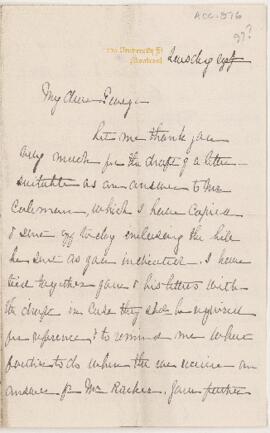 ACC-576
97?
University St
Montreal
Tuesday
My dear
Let me thank you
very much for the draft of a letter
suitable as an answer to Mr
Coleman, which I have copied
& sent off today enclosing the bill
he sent as you indicated. I have
tied together your & his letters with
the draft in case they shd be required
for reference & to remind me what
to do when the we receive an
answer fr Mr Your further